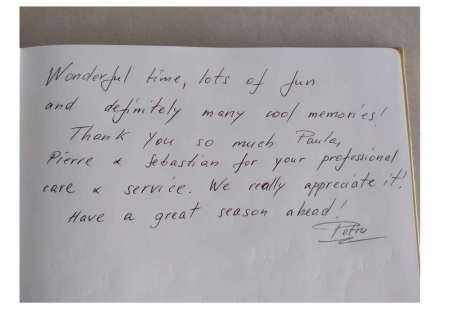 Wonderful time, lots of fun
and definitely many cool memories!
Thank you so much Paula,
Pierre & Sebastian for your professional
care & service. We really appreciate it!
Have a great season ahead!